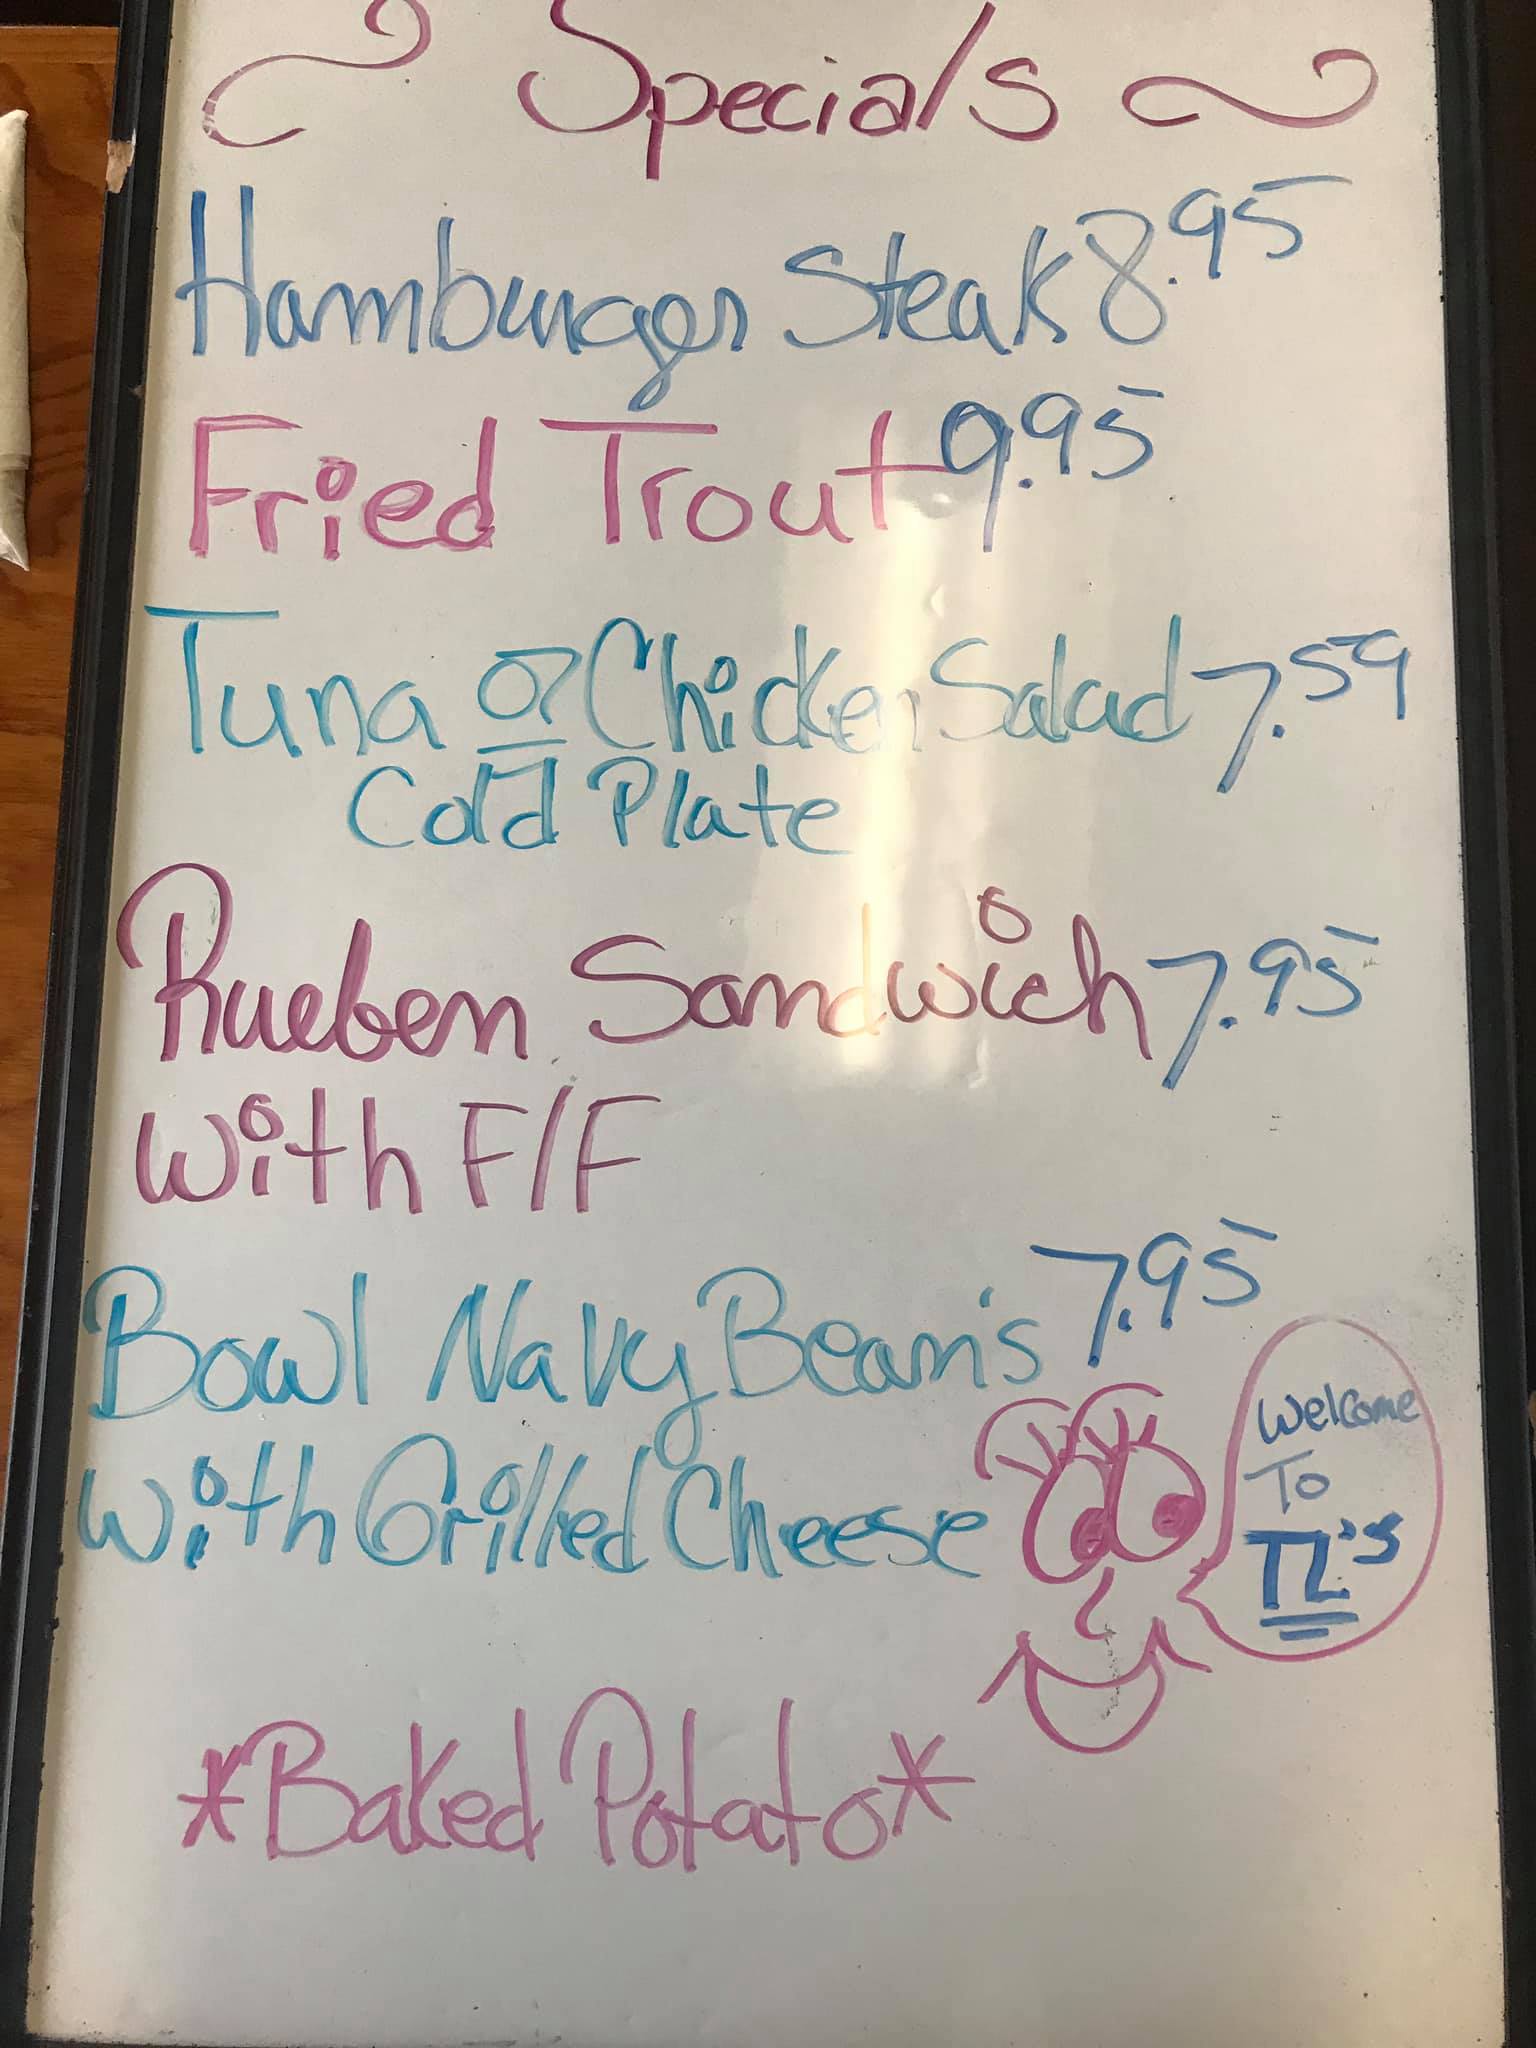 Specials
Hamburger Steak 8.95
Fried Trout 9.95
Tuna or Chicken Salad 7.59
Cold Plate
Rueben Sandwich 7.95
with F/F
Bowl Navy Bean's 7.95
with Grilled Cheese
Welcome
To
TL's
*Baked Potato*